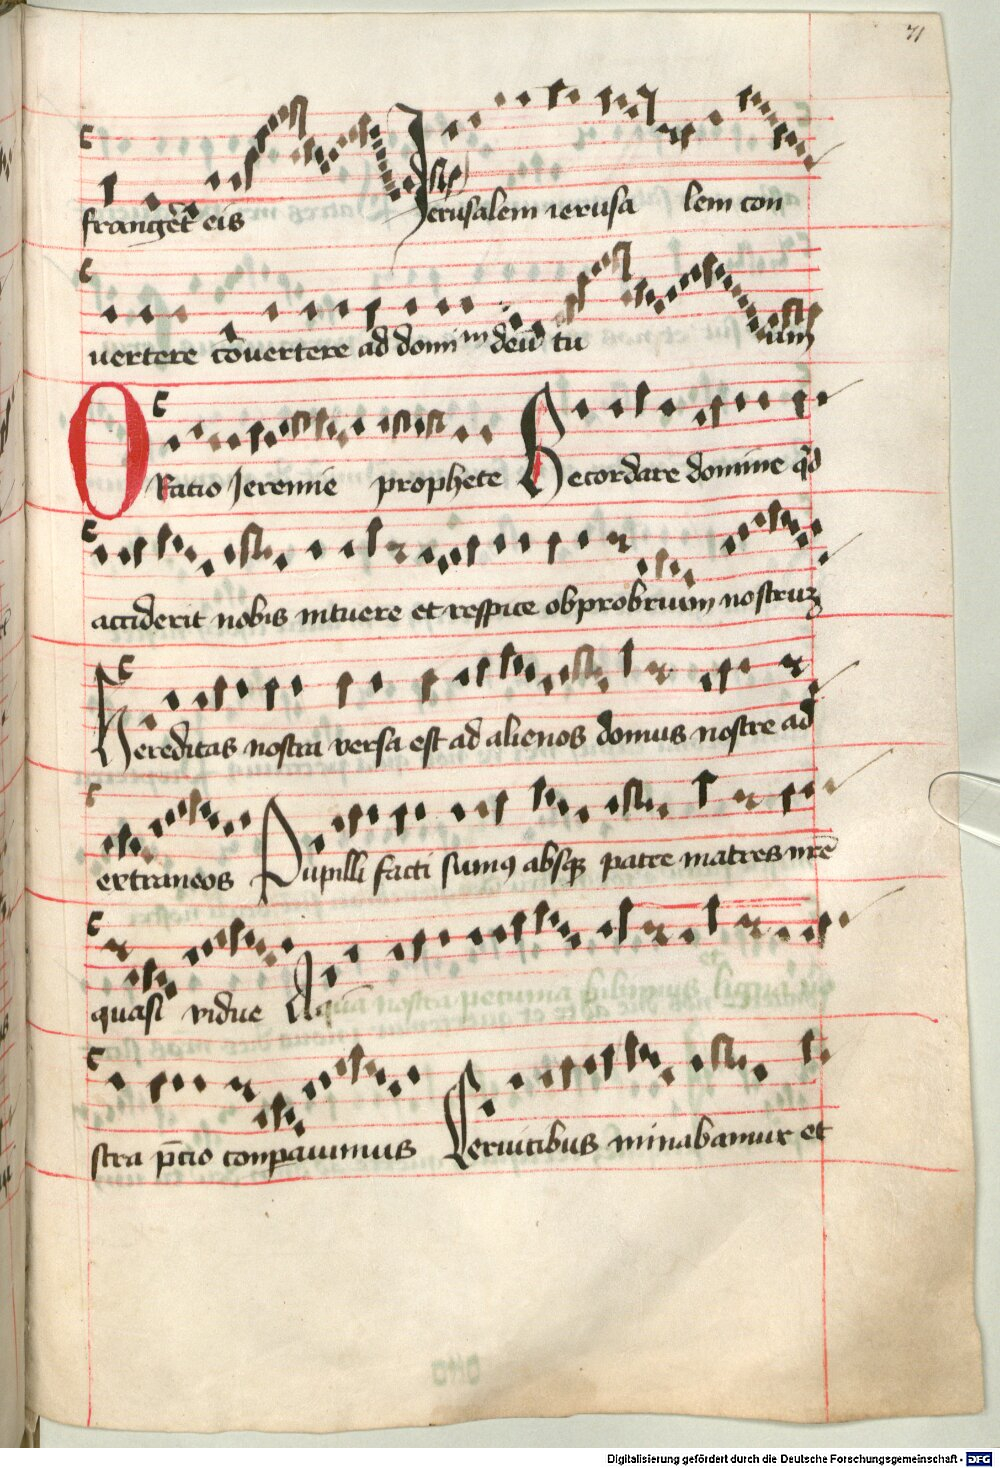 71
frangeret eis Jerusalem ierusa lem con
uertere cōuertere ad dominm deū tu um
ORatio Jeremie prophete Recordare domine qd
acciderit nobis intuere et respice obprobrium nostruz
Hereditas nostra versa est ad alienos domus nostre ad
extraneos Pupilli facti sumꝰ absqꝫ patre matres nrē
quasi vidue Aquā nostra pecunia bibimus ligna no
stra p̄cio comparauimus Ceruicibus minabamur et
Digitalisierung gefördert durch die Deutsche Forschungsgemeinschaft - DFG